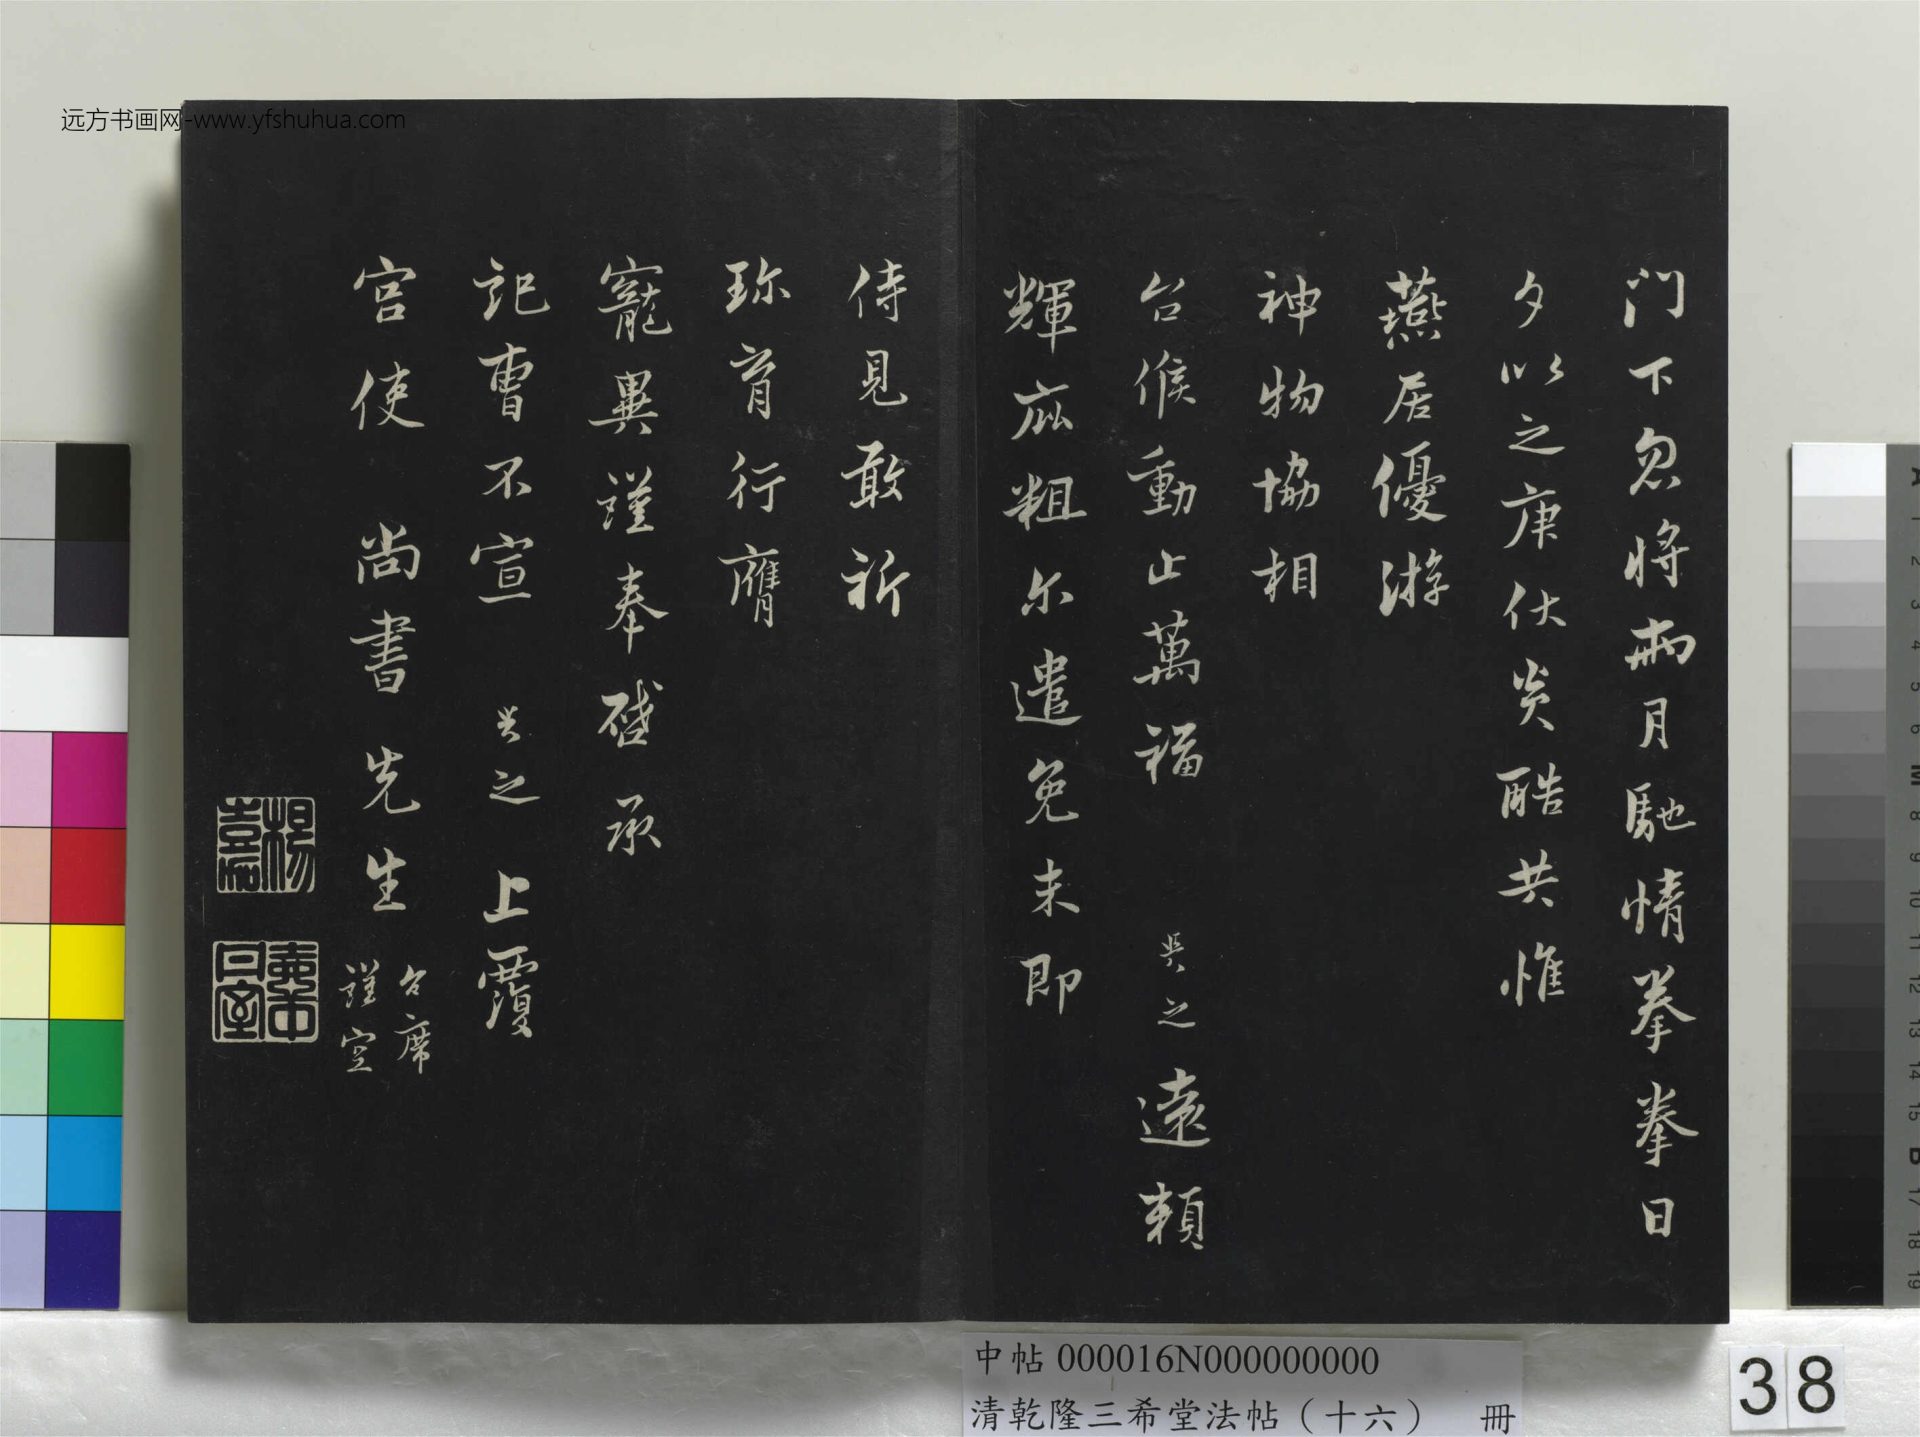 远方书画网-www.yfshuhua.com
门下忽将兩月馳情拳拳日
夕以之庚伏炎酷共惟
燕居優游
神物協相
台候動止萬福 說之遠賴
輝庇粗尔遣免未即
侍見敢祈
珎育行膺
寵異謹奉啓承
記曹不宣 說之上覆
宫使 尚書先生
台席
謹空
中帖 000016N000000000
清乾隆三希堂法帖（十六） 冊
38